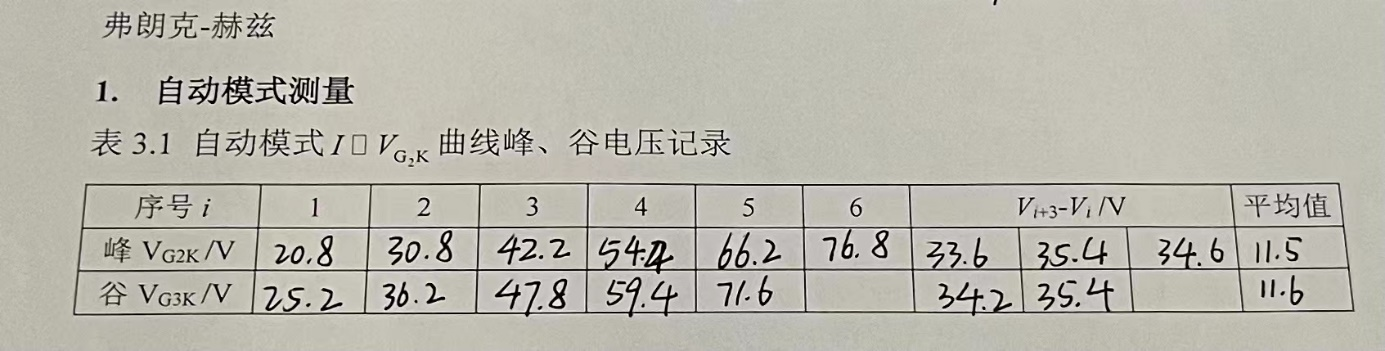 弗朗克-赫兹
1. 自动模式测量
表 3.1 自动模式 I□ V_{G₂K} 曲线峰、谷电压记录
序号 i 1 2 3 4 5 6 V_{i+3}-V_i /V 平均值
峰 VG2K /V 20.8 30.8 42.2 54.4 66.2 76.8 33.6 35.4 34.6 11.5
谷 VG3K /V 25.2 36.2 47.8 59.4 71.6 34.2 35.4 11.6